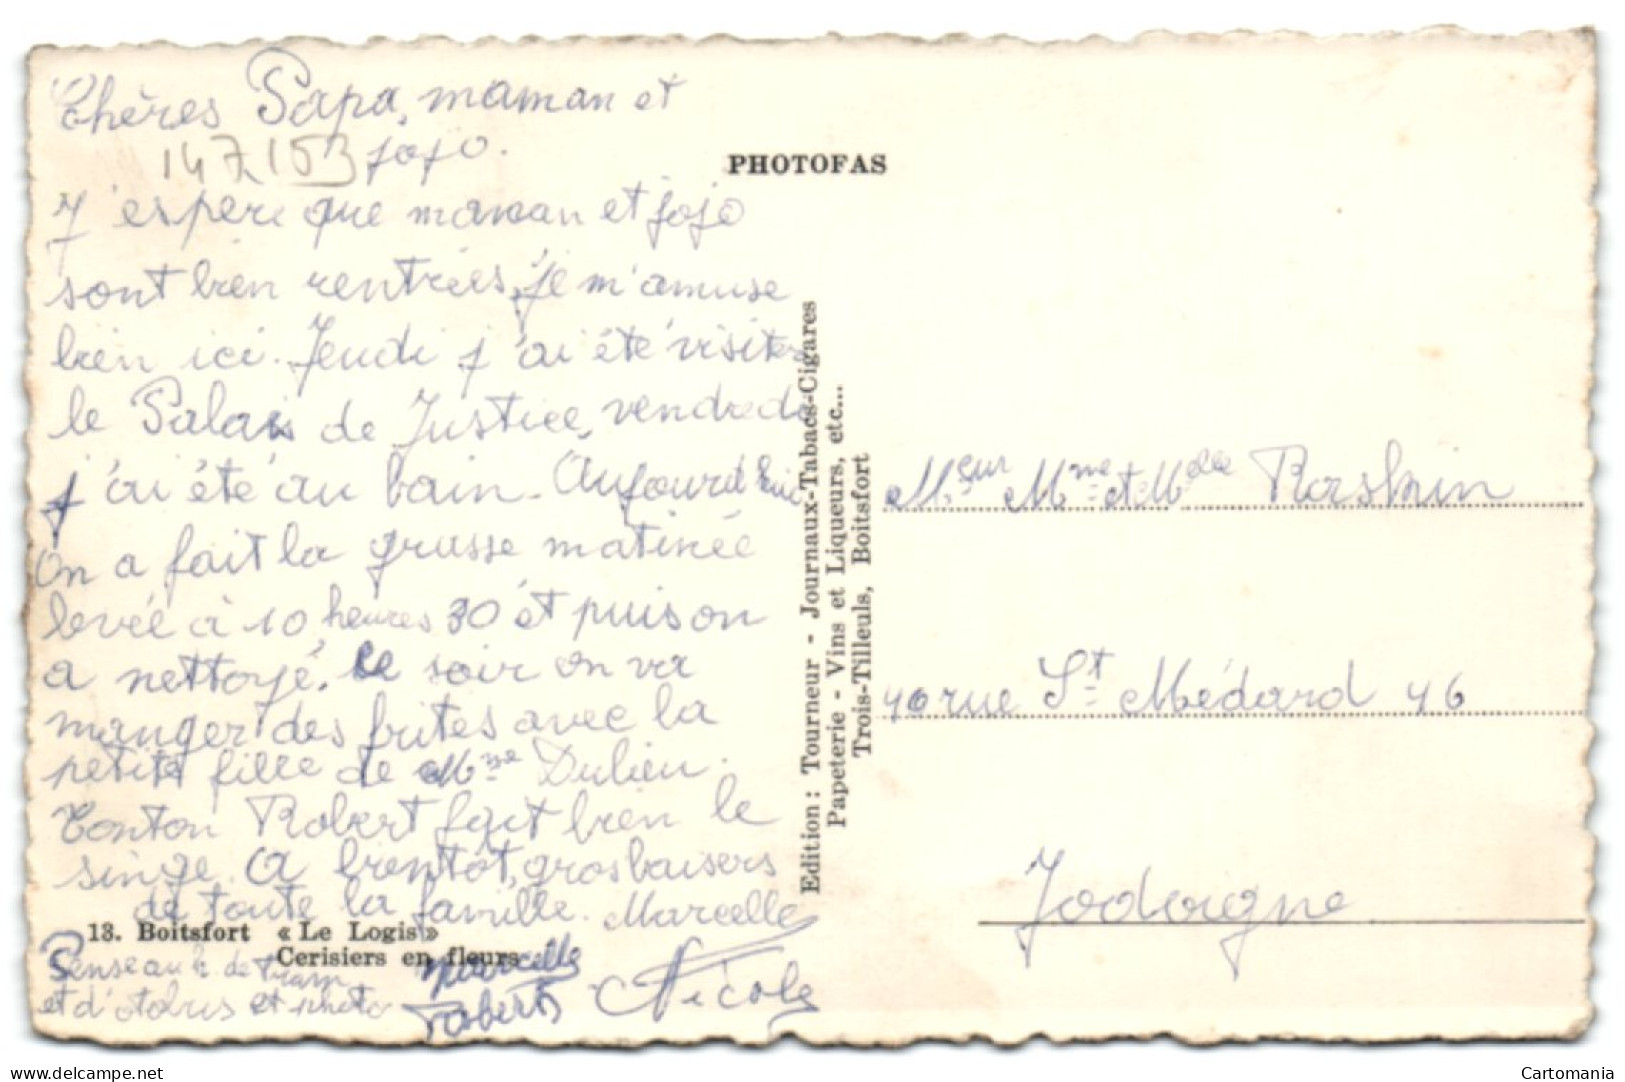 Chères Papa, maman et
147153 jojo.
J'espère que maman et jojo
sont bien rentrées, je m'amuse
bien ici. Jeudi j'ai été visiter
le Palais de Justice, vendredi
j'ai été au bain. Aujourd'hui
On a fait la grasse matinée
levée à 10 heures 30 et puis on
a nettoyé. Le soir on va
manger des frites avec la
petite fille de Mme Dulieu.
Tonton Robert fait bien le
singe. A bientôt, gros baisers
de toute la famille. Marcelle
13. Boitsfort « Le Logis »
Cerisiers en fleurs
Pense au de tram
et d'otobus et photo
Marcelle
Robert
Nicole
PHOTOFAS
Edition : Tourneur - Journaux-Tabacs-Cigares
Papeterie - Vins et Liqueurs, etc...
Trois-Tilleuls, Boitsfort
Mr Mme et Melle
rue St Médard 46
Jodoigne
Cartomania
delcampe.net